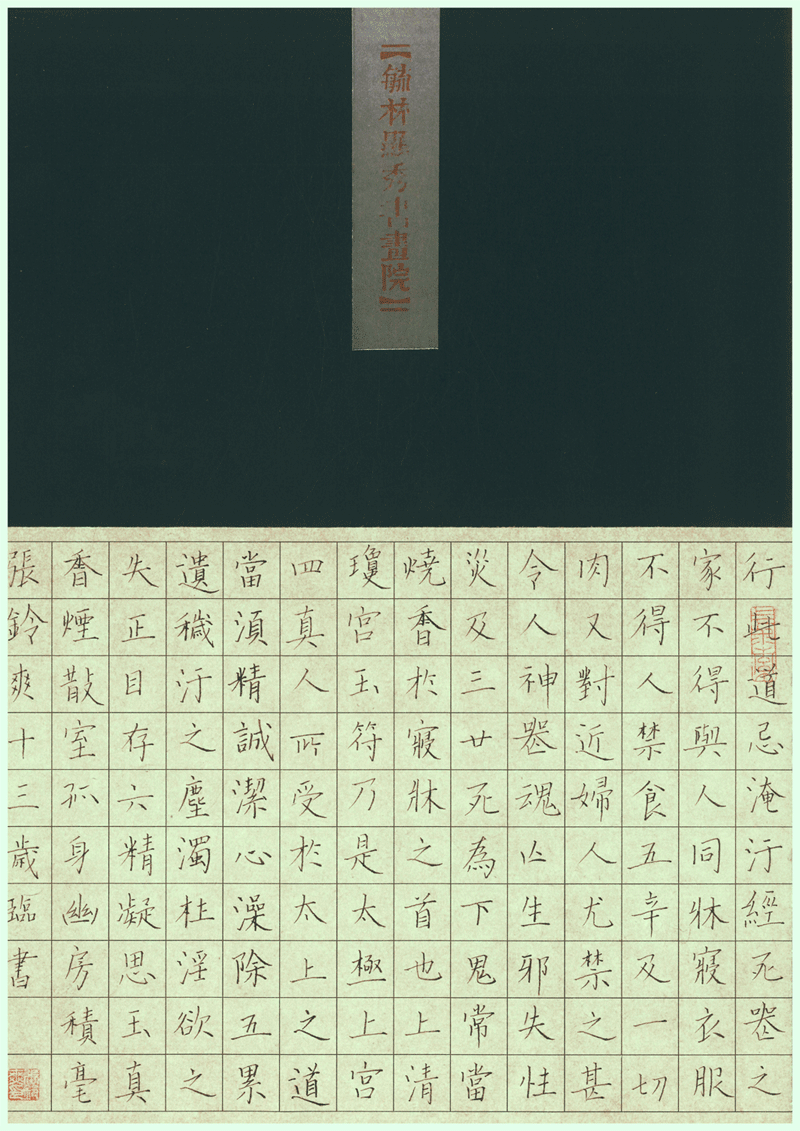 【林秀書畫院】
行此道忌淹汙經死喪之
家不得與人同牀寢衣服
不得人禁食五辛及一切
肉又對近婦人尤禁之甚
令人神喪魂亡生邪失性
災及三世死為下鬼常當
燒香於寢牀之首也上清
瓊宮玉符乃是太極上宮
四真人所受於太上之道
當須精誠潔心澡除五累
遺穢汙之塵濁杜淫欲之
失正目存六精凝思玉真
香煙散室孤身幽房積毫
張鈴爽十三歲臨書